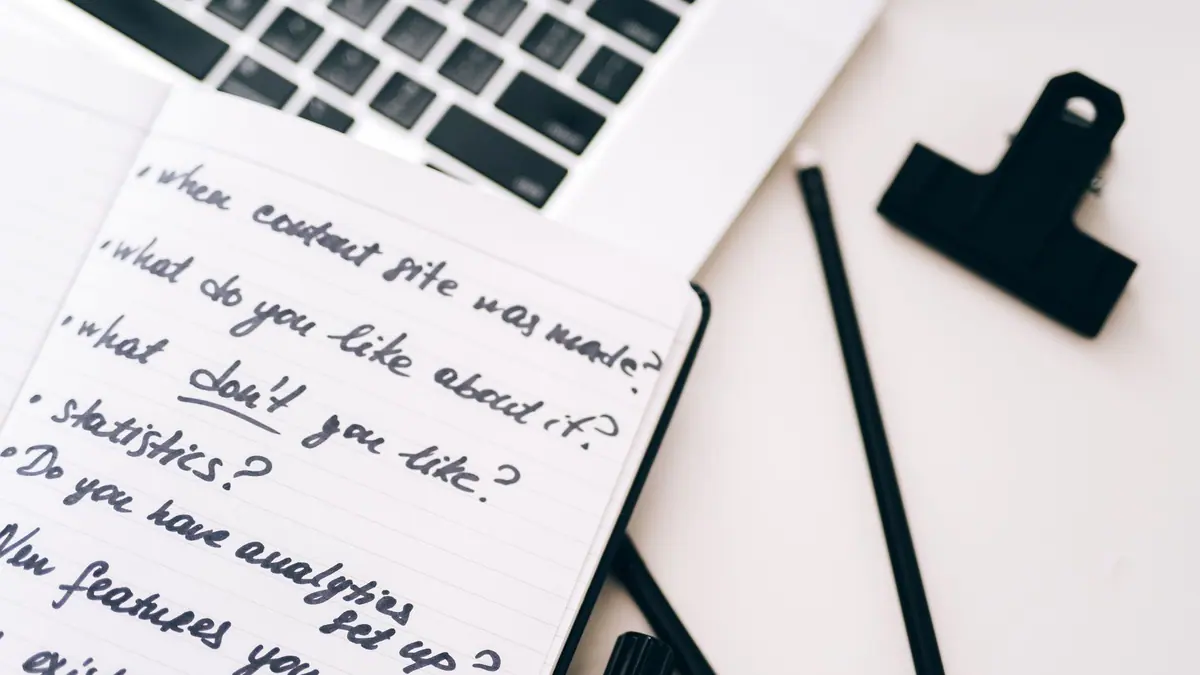 • when content site was made?
• what do you like about it?
• what don't you like?
• statistics?
• Do you have analytics
set up?
New features you